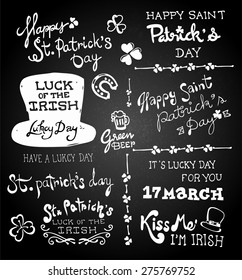 Happy
St. Patrick's
Day
HAPPY SAINT
Patrick's
DAY
LUCK
OF THE
IRISH
Lukcy Day
Green
BEER
Happy Saint
Patrick's
Day
HAVE A LUKCY DAY
IT'S LUCKY DAY
FOR YOU
17 MARCH
st. patrick's day
St. Patrick's
LUCK OF THE
IRISH
Kiss Me
I'M IRISH
shutterstock
IMAGE ID: 275769752
www.shutterstock.com